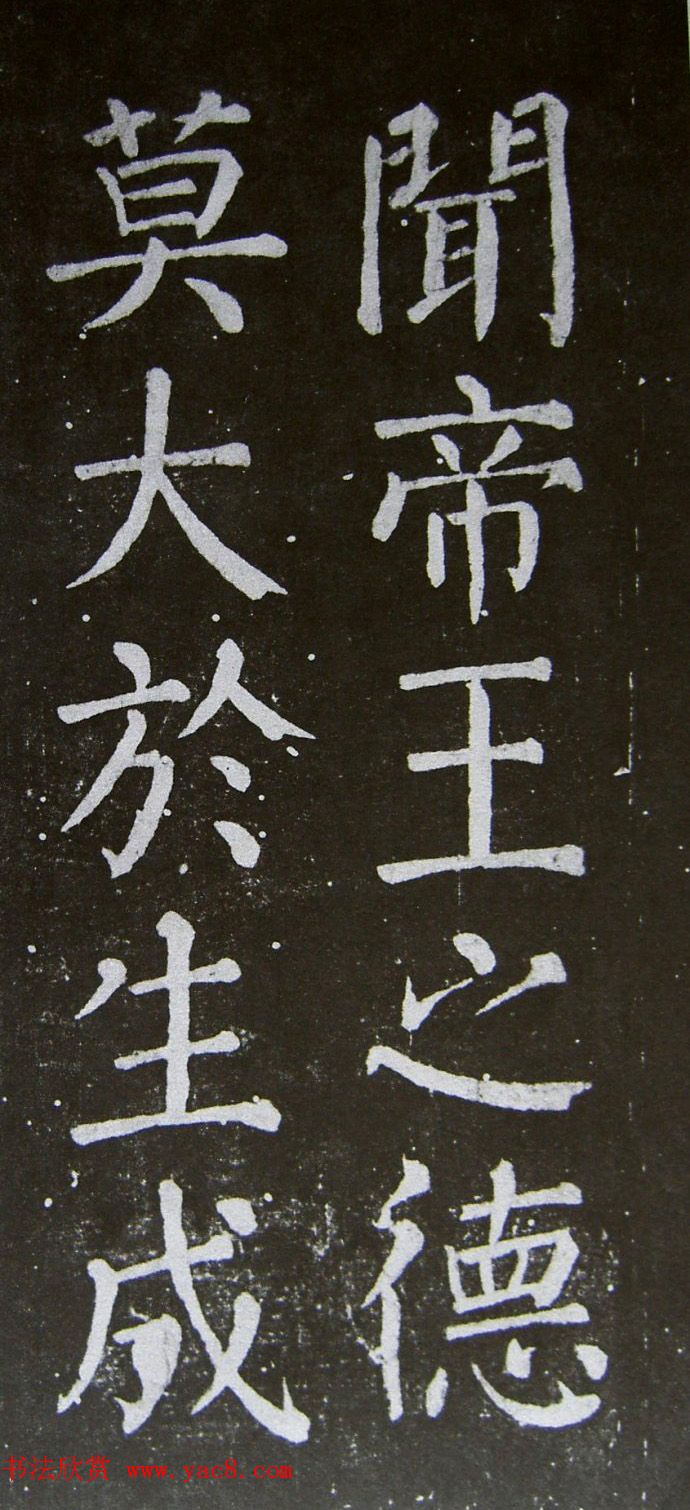 聞帝王之德
莫大於生成
书法欣赏 www.yac8.com